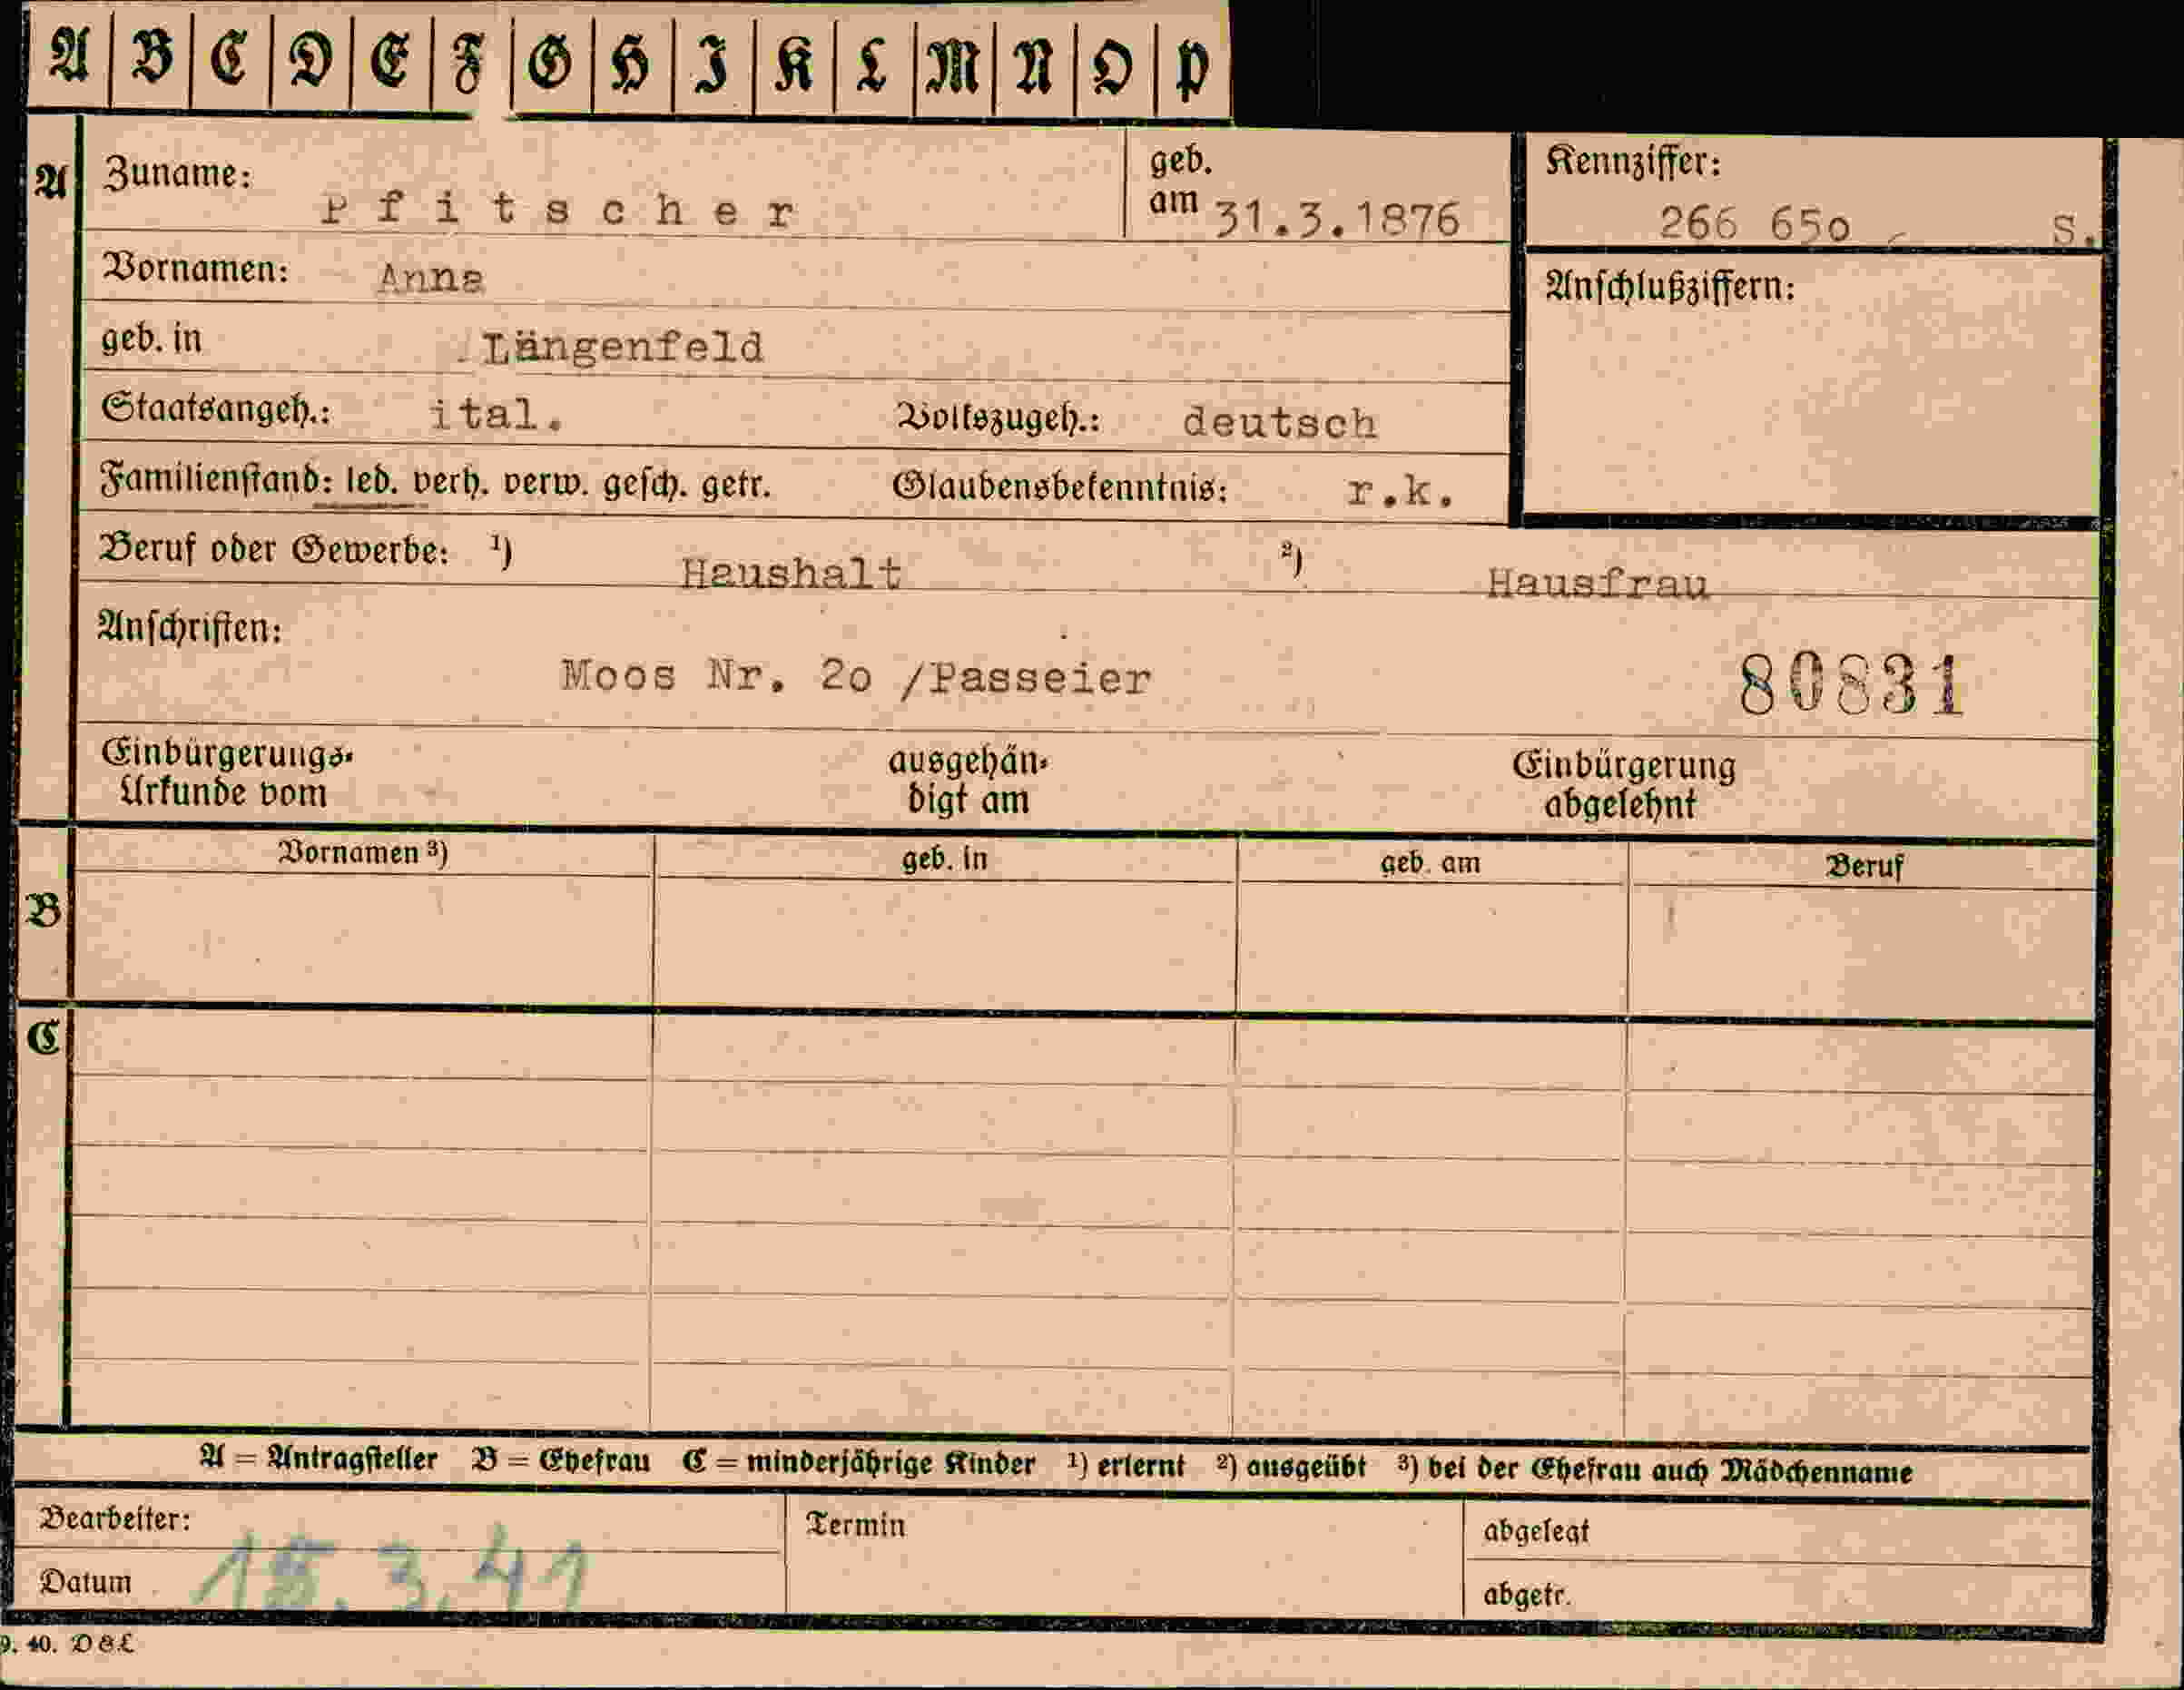 A B C D E F G H I K L M N O P
A Zuname: Pfitscher geb. am 31.3.1876 Kennziffer: 266 65o S.
Vornamen: Anna Anschlußziffern:
geb. in Längenfeld
Staatsangeh.: ital. Volkszugeh.: deutsch
Familienstand: led. verh. verw. gesch. getr. Glaubensbekenntnis: r.k.
Beruf oder Gewerbe: 1) Haushalt 2) Hausfrau
Anschriften:
Moos Nr. 2o /Passeier 80831
Einbürgerungs- ausgehän- Einbürgerung
Urkunde vom digt am abgelehnt
Vornamen 3) geb. in geb. am Beruf
B
C
A = Antragsteller B = Ehefrau C = minderjährige Kinder 1) erlernt 2) ausgeübt 3) bei der Ehefrau auch Mädchenname
Bearbeiter: Termin abgelegt
Datum 18.3.41 abgetr.
9. 40. D&L